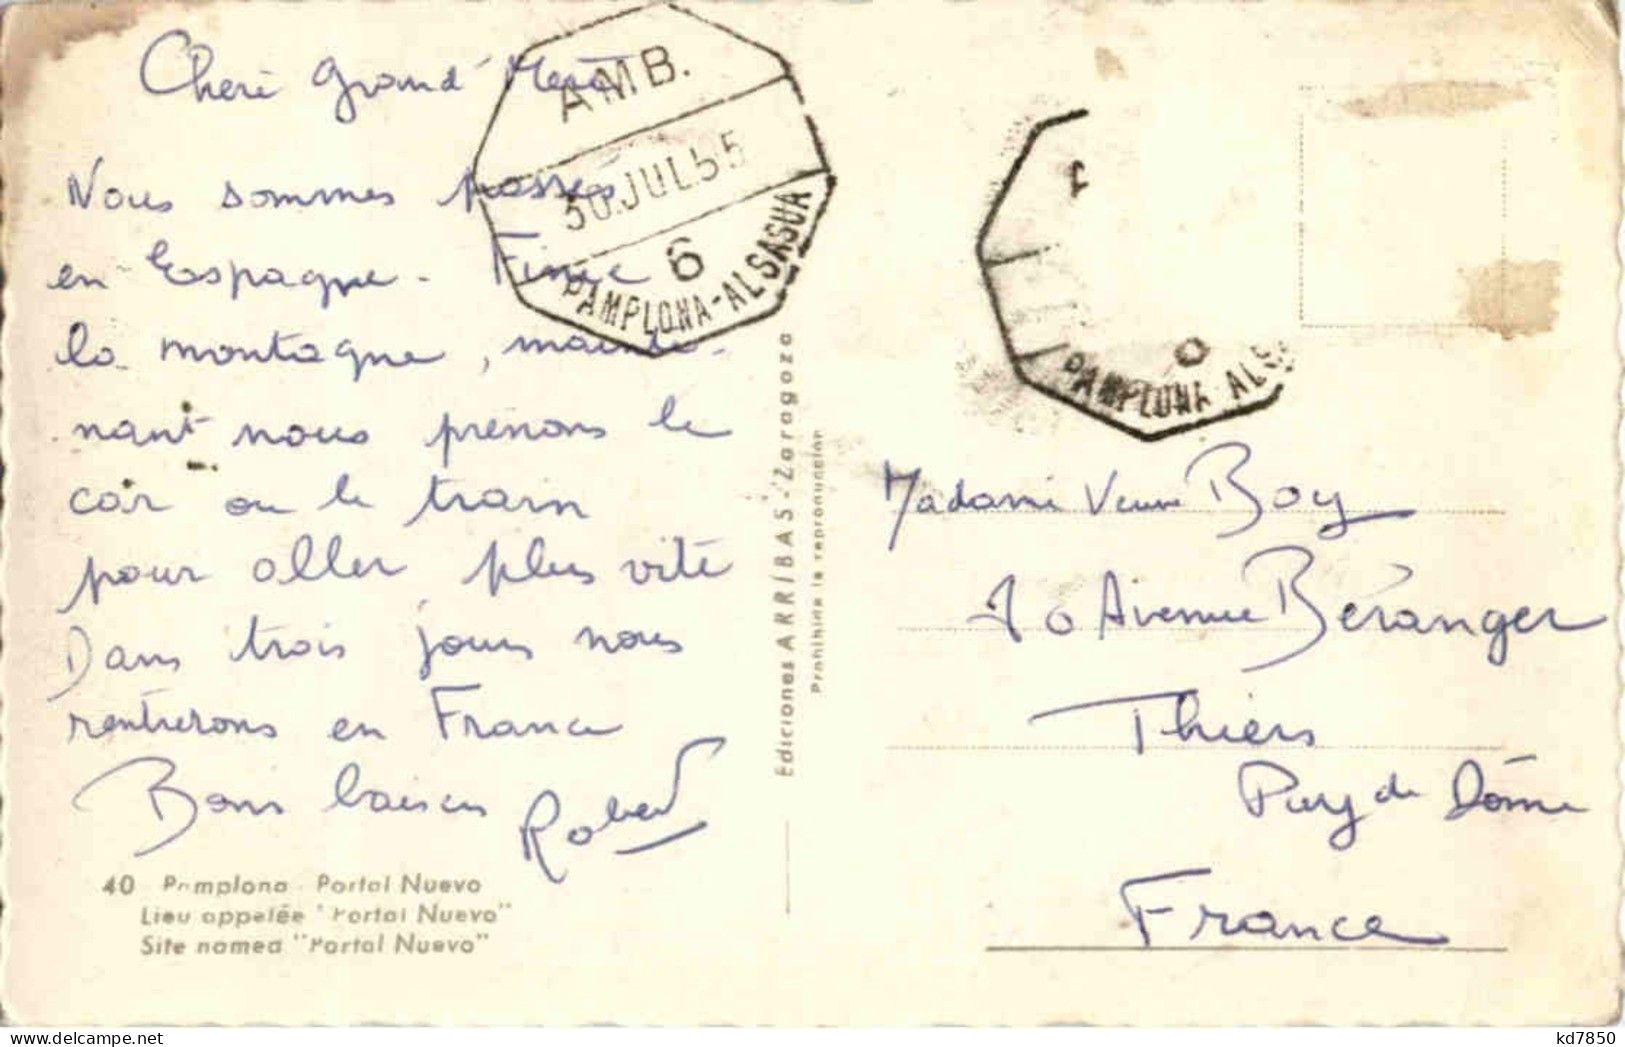 Cheri Grand' Mere
Nous sommes passes
en Espagne. Finie
la montagne, mainte-
nant nous prenons le
car ou le train
pour aller plus vite
Dans trois jours nous
rentrerons en France
Bons baisers Robert
40 Pamplona - Portal Nuevo
Lieu appelée "Portal Nuevo"
Site named "Portal Nuevo"
AMB.
30.JUL.55
6
PAMPLONA-ALSASUA
Ediciones ARRIBAS - Zaragoza
Prohibida la reproducción
1
PAMPLONA ALS
Madame Veuve Boy
10 Avenue Béranger
Thiers
Puy de Dôme
France
kd7850